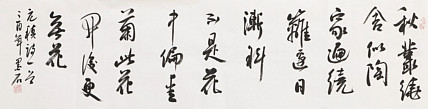 秋叢繞
舍似陶
家遍繞
籬邊日
漸斜
不是花
中偏愛
菊此花
開後更
無花
元稹詩一首
酉年墨石